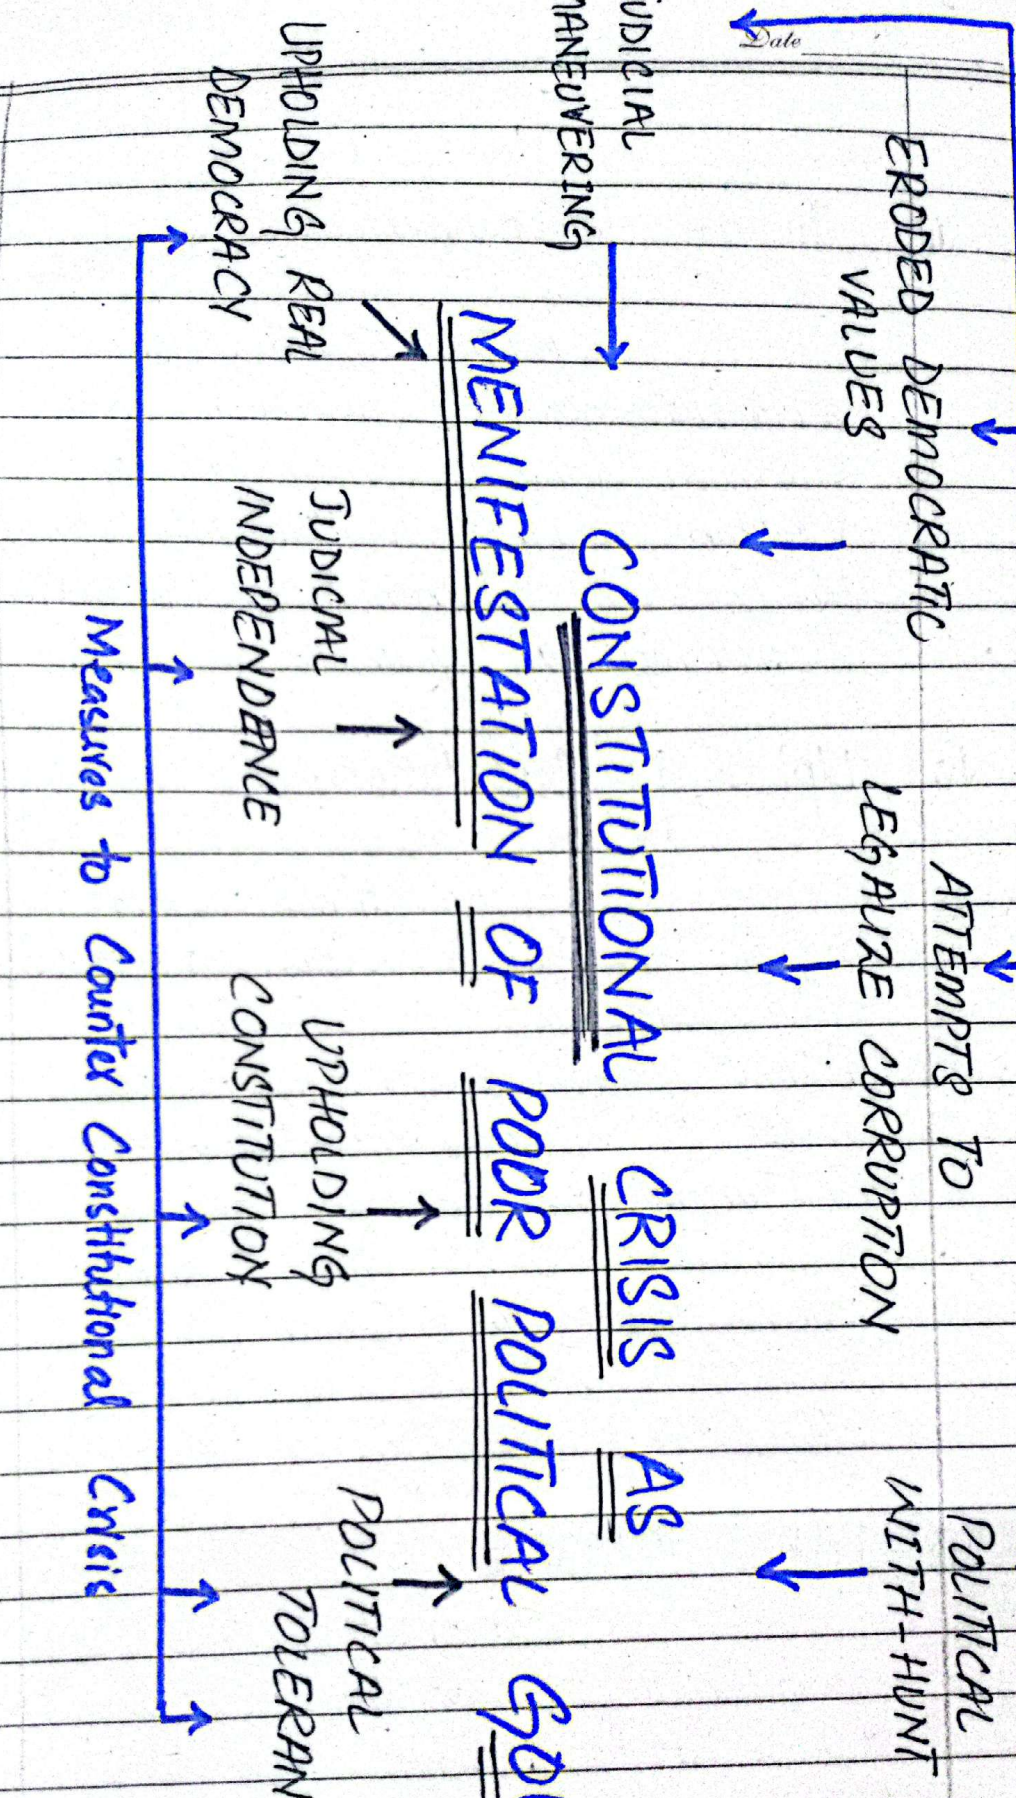 Date
ERODED DEMOCRATIC
VALUES
ATTEMPTS TO
LEGALIZE CORRUPTION
POLITICAL
WITH-HUNT
UDICIAL
MANEUVERING
CONSTITUTIONAL CRISIS AS
MENIFESTATION OF POOR POLITICAL
UPHOLDING REAL
DEMOCRACY
JUDICIAL
INDEPENDENCE
UPHOLDING
CONSTITUTION
POLITICAL
TOLERAN
Measures to Counter Constitutional Crisis